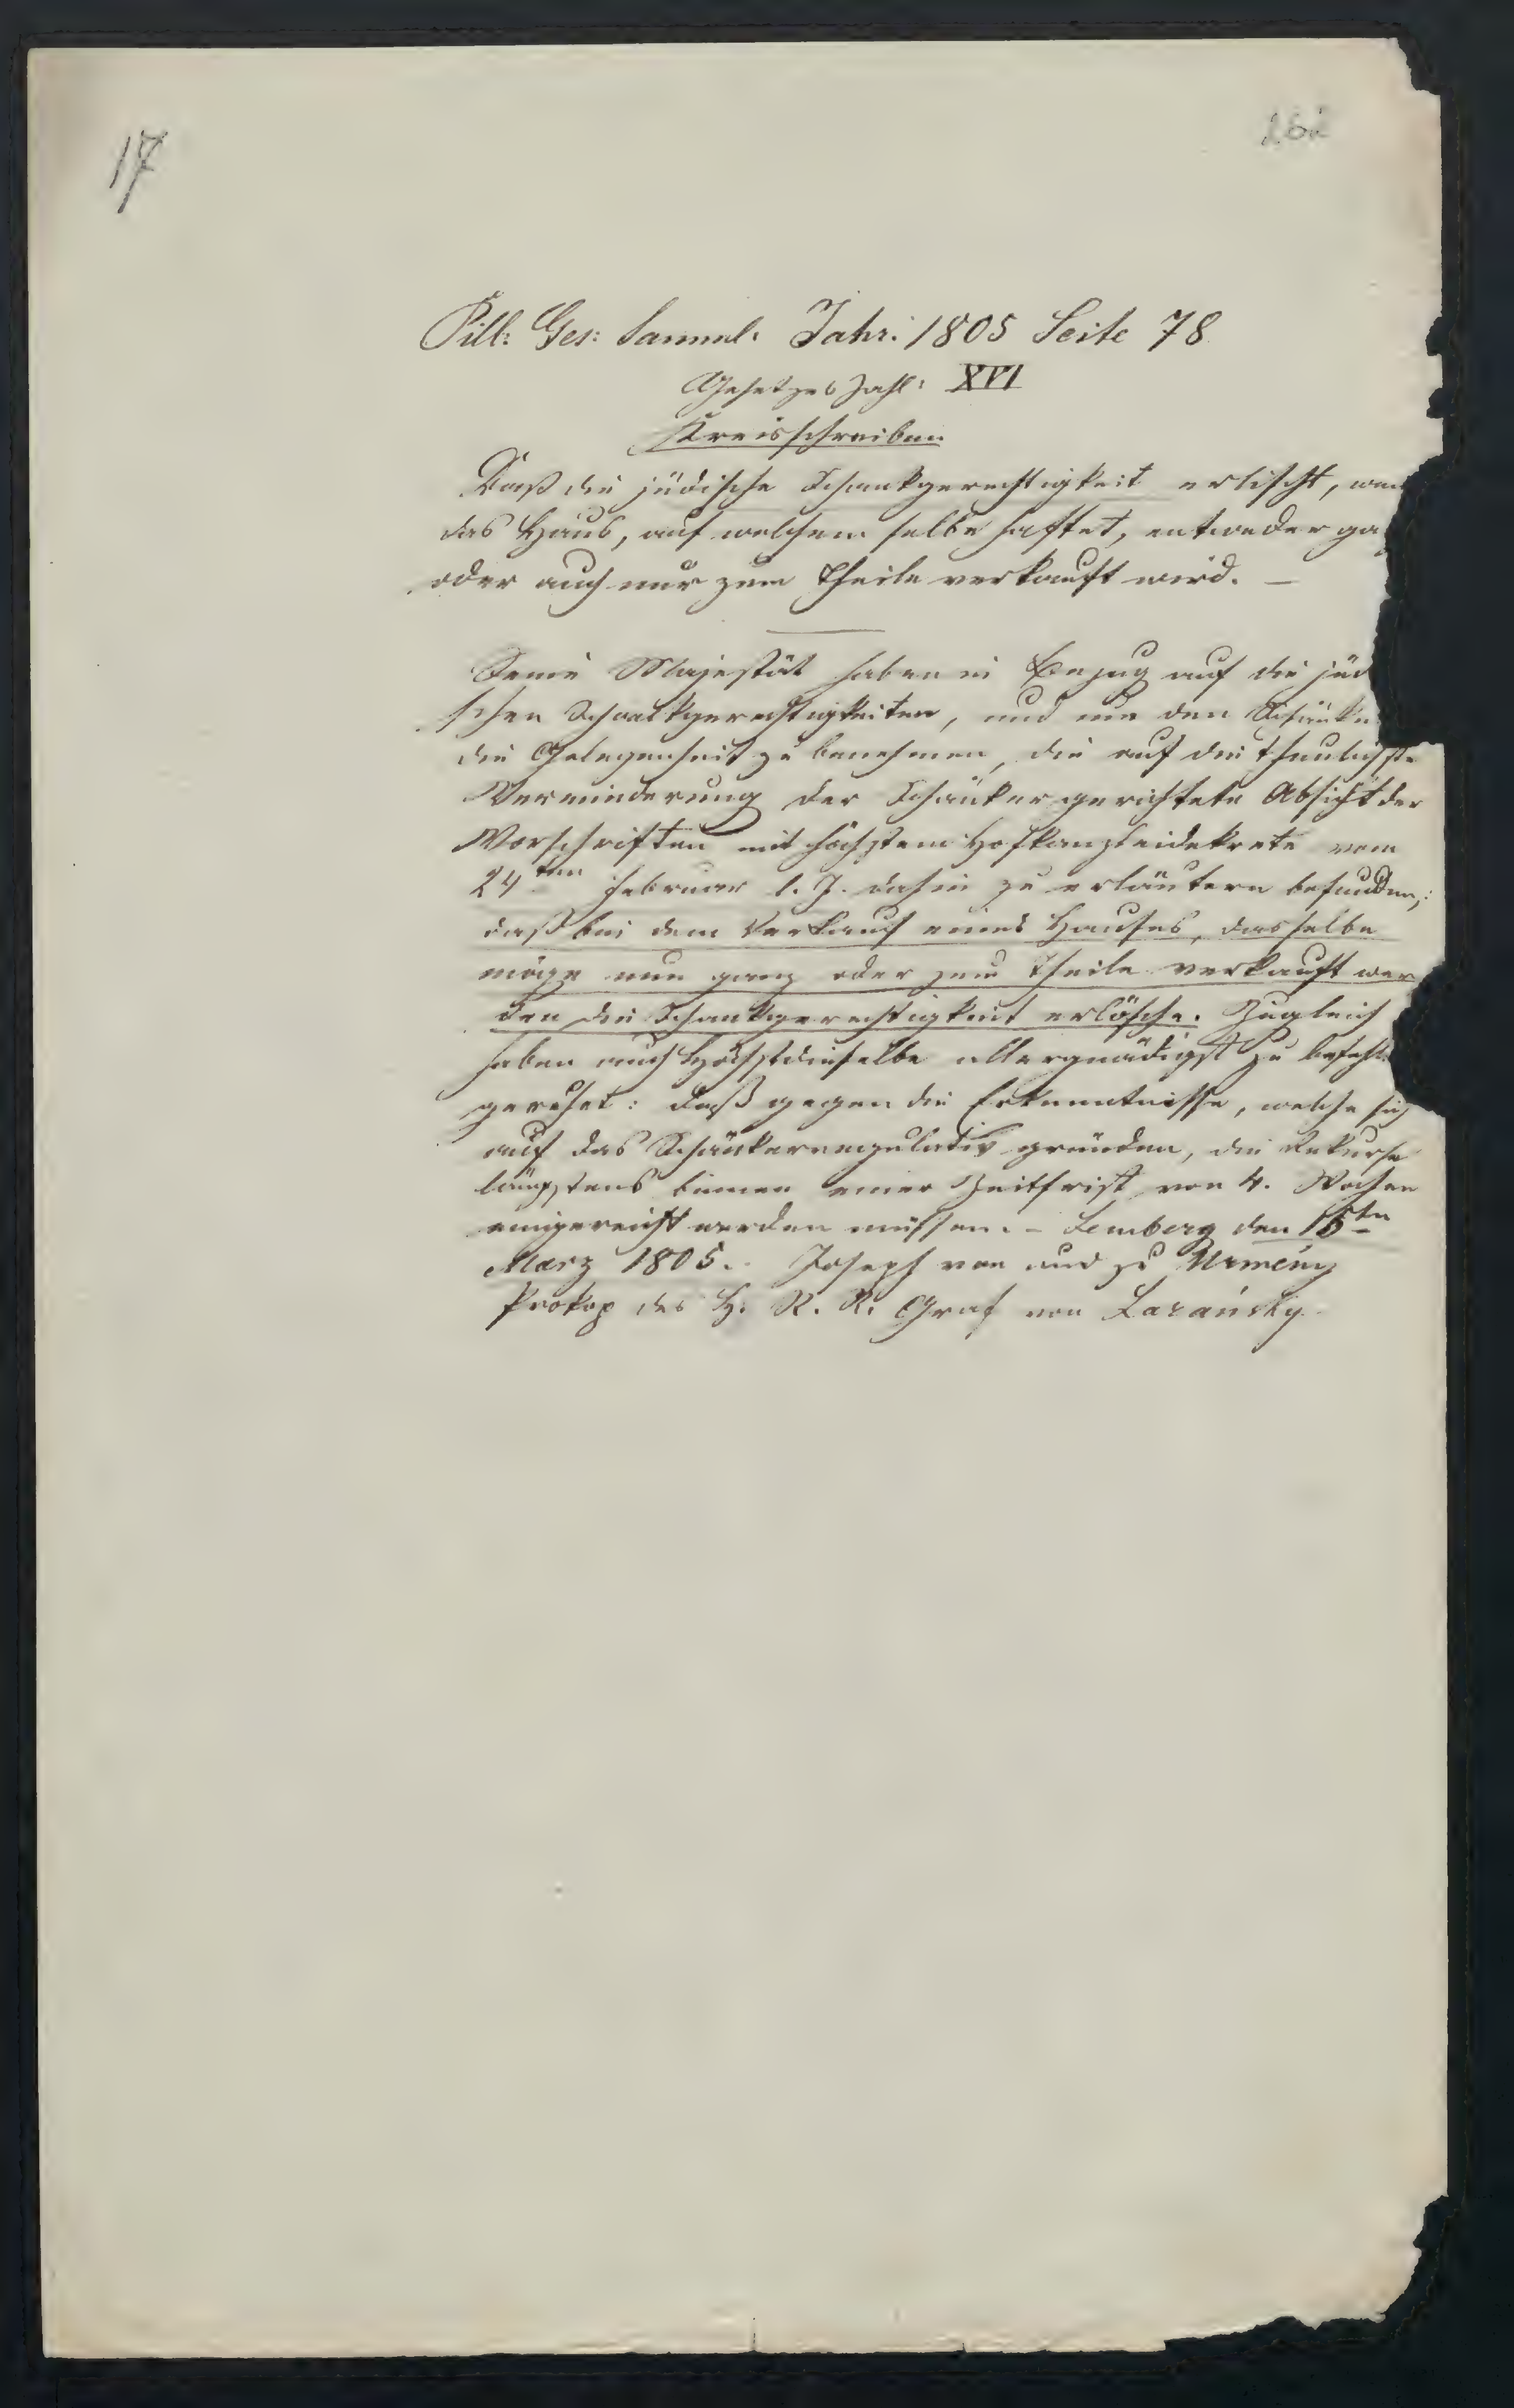 17
262
Pill: Ges: Samml. Jahr: 1805 Seite 78
Gesetzes Zahl: XVI
Kreisschreiben
Daß die jüdische Schankgerechtigkeit erlischt, wen
das Haus, auf welchem selbe haftet, entweder ga
oder auch nur zum Theile verkauft wird. —
Seine Majestät haben in Bezug auf die jüd
schen Schankgerechtigkeiten, und um den Schänke
die Gelegenheit zu benehmen, die auf die thunlichste
Verminderung der Schänker gerichtete Absicht der
Vorschriften mit höchstem Hofkanzleidekrete vom
24ten Februar l. J. dahin zu erläutern befunden,:
daß bei dem Verkauf eines Hauses, dasselbe
möge nun ganz oder zum Theile verkauft wer
den die Schankgerechtigkeit erlösche. Zugleich
haben auch Höchstdieselbe allergnädigst zu befehle
geruhet: daß gegen die Erkenntnisse, welche sich
auf das Schänkerregulativ gründen, die Rekurse
längstens binnen einer Zeitfrist von 4. Wochen
eingereicht werden müssen. – Lemberg den 15ten
März 1805. Joseph von und zu Urmeny
Prokop des H. R. R. Graf von Lazansky